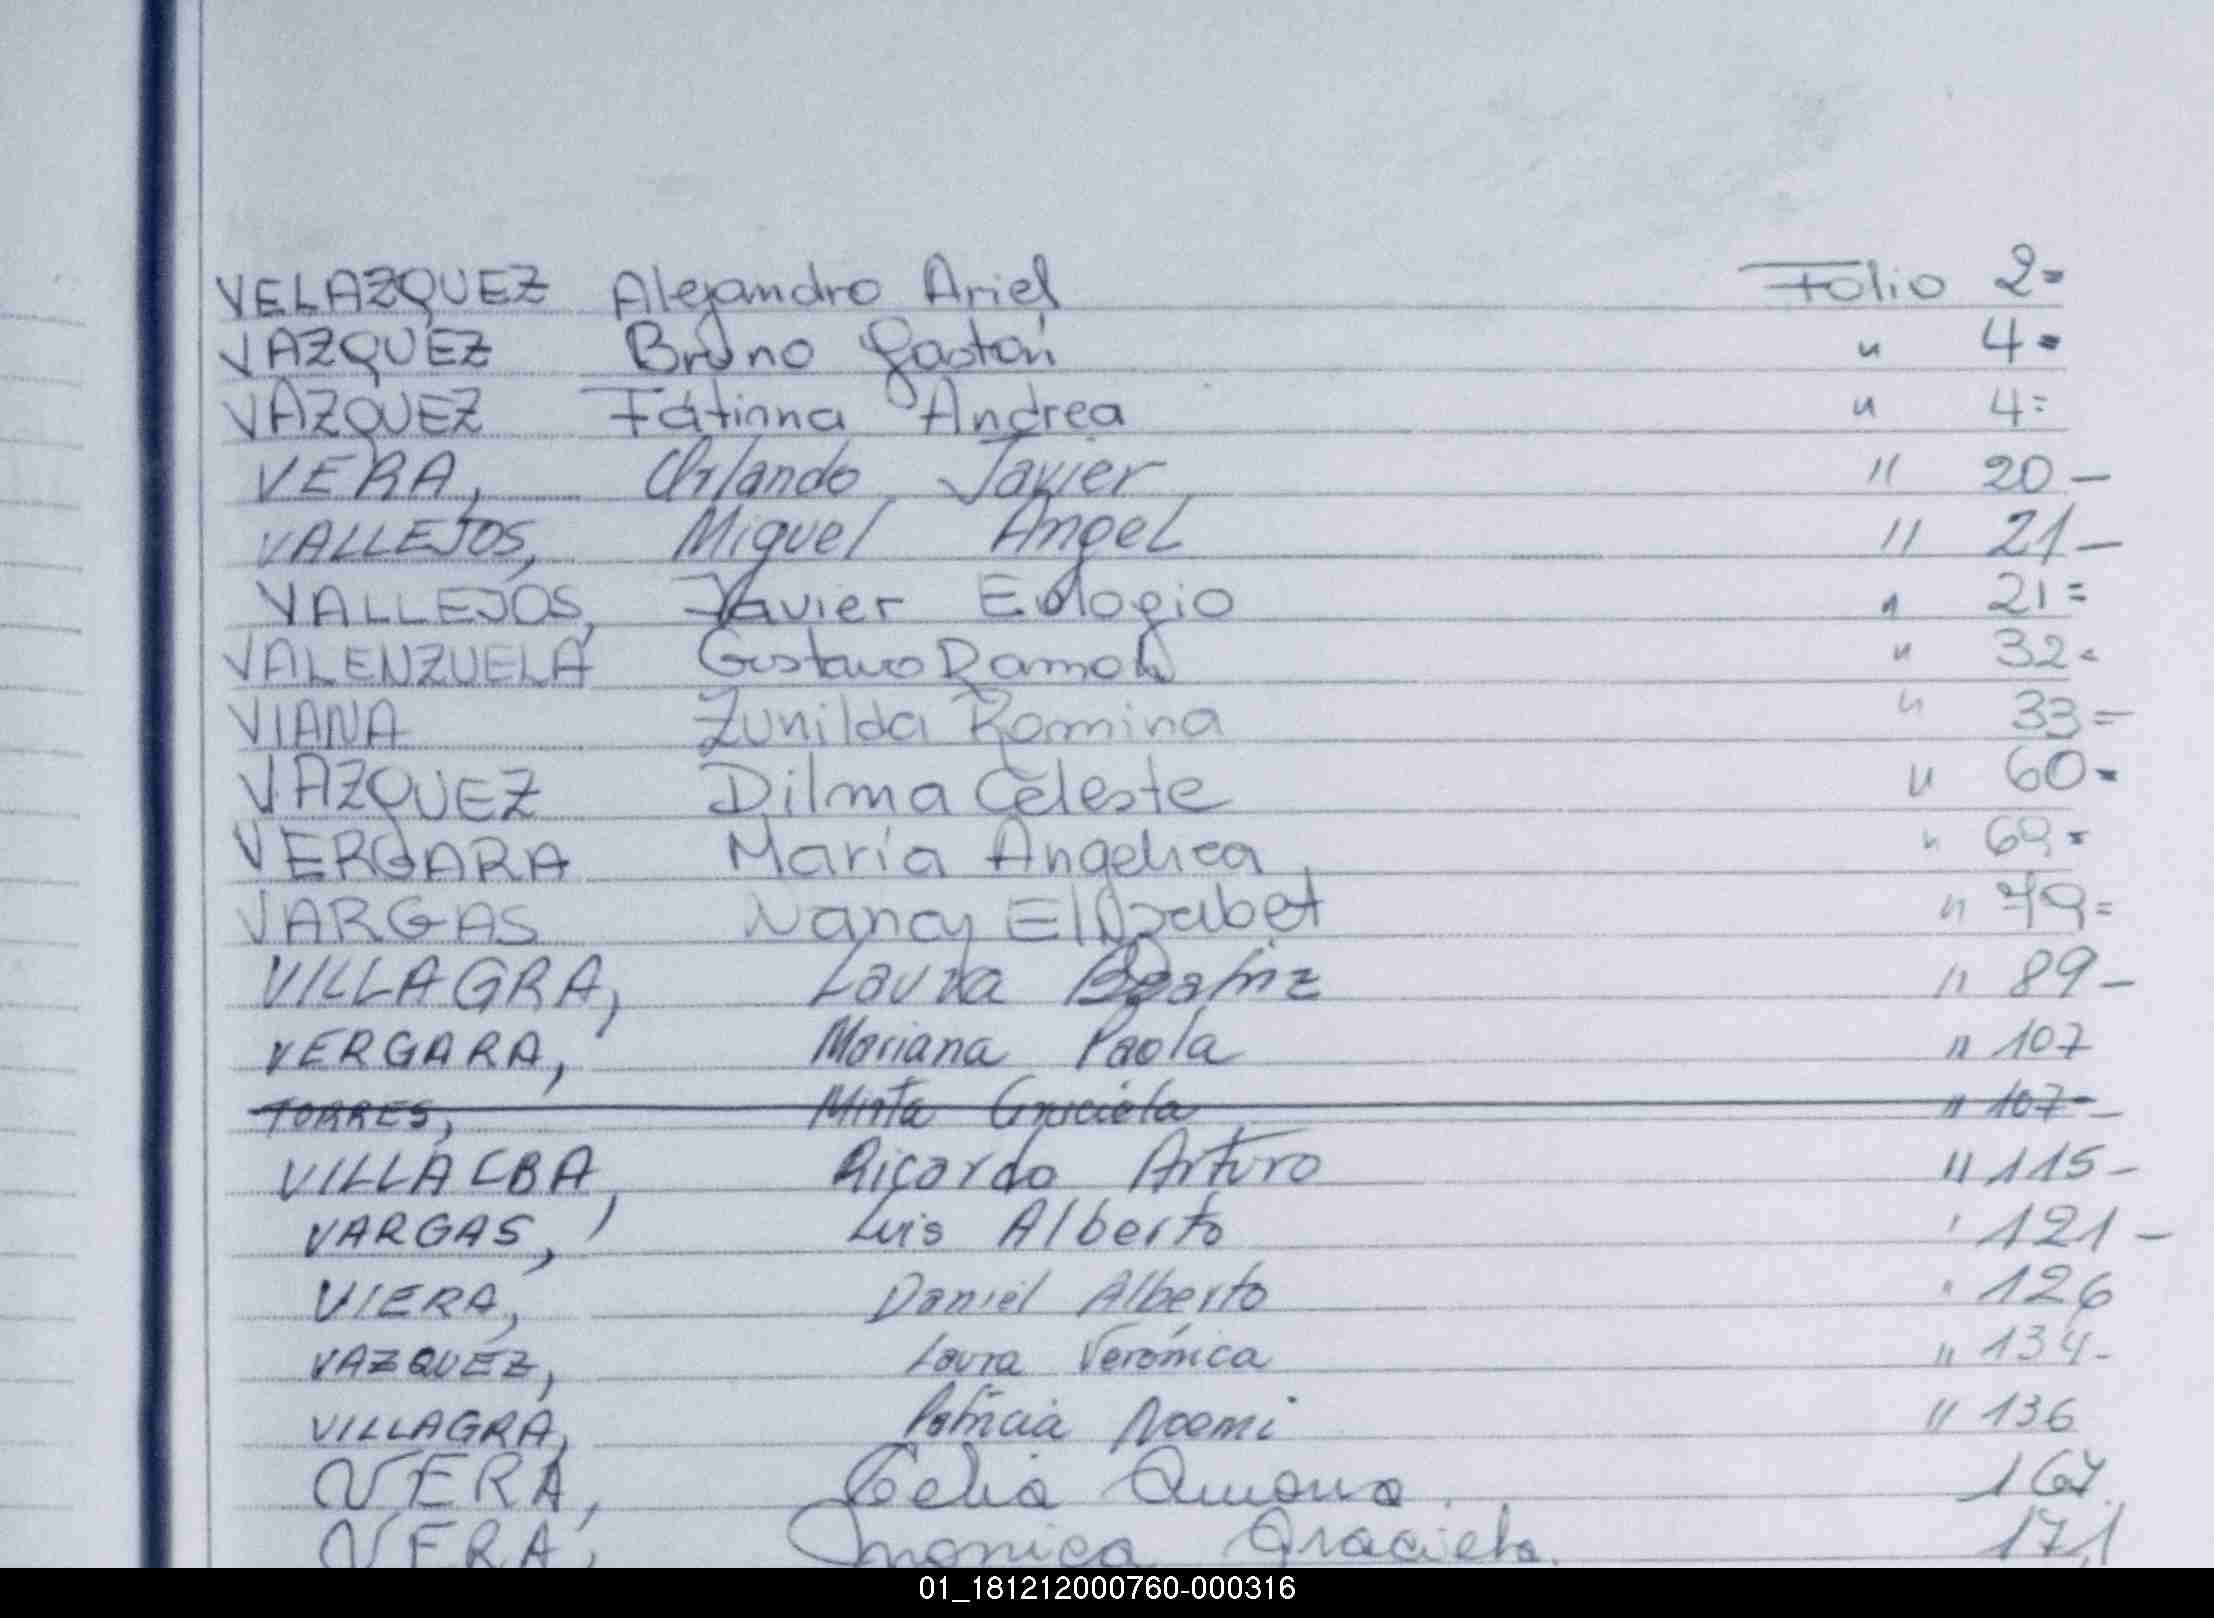 VELAZQUEZ Alejandro Ariel Folio 2=
VAZQUEZ Bruno Gastón " 4=
VAZQUEZ Fátima Andrea " 4=
VERA, Orlando Javier " 20-
VALLEJOS, Miguel Angel " 21-
VALLEJOS, Javier Eulogio " 21=
VALENZUELA Gustavo Ramon " 32=
VIANA Zunilda Romina " 33=
VAZQUEZ Dilma Celeste " 60=
VERGARA María Angelica " 69=
VARGAS Nancy Elizabet " 79=
VILLAGRA, Laura Beatriz " 89-
VERGARA, Mariana Paola " 107
TORRES, Mirta Graciela " 107-
VILLALBA, Ricardo Arturo " 115-
VARGAS, Luis Alberto " 121-
VIERA, Daniel Alberto " 126
VAZQUEZ, Laura Verónica " 134-
VILLAGRA, Patricia Noemi " 136
VERA, Celia 167
VERA, Monica Graciela. 171
01_181212000760-000316